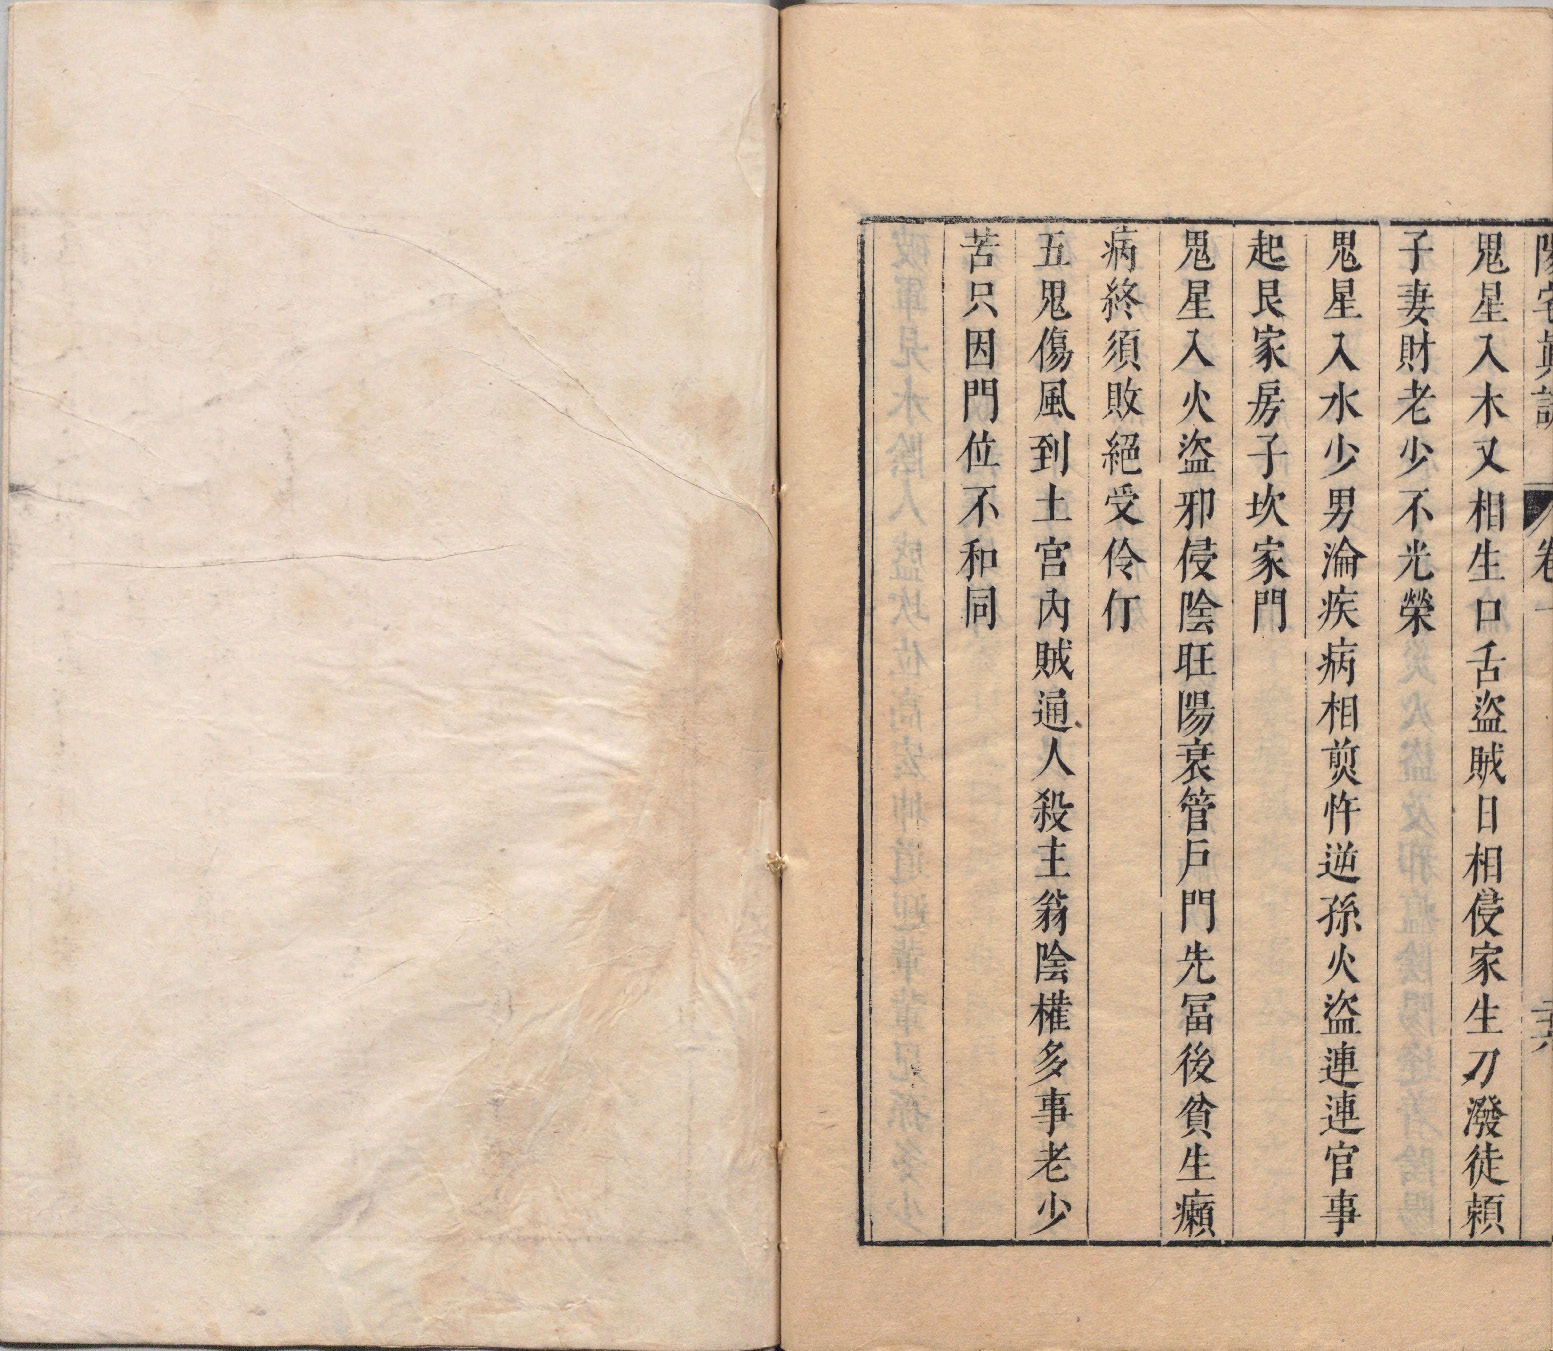 陽宅眞訣 卷一 二六
鬼星入木又相生口舌盜賊日相侵家生刀潑徒頼
子妻財老少不光榮
鬼星入水少男淪疾病相煎忤逆孫火盜連連官事
起艮家房子坎家門
鬼星入火盜邪侵陰旺陽衰管戶門先冨後貧生癩
病終須敗絕受伶仃
五鬼傷風到土宮內賊通人殺主翁陰權多事老少
苦只因門位不和同